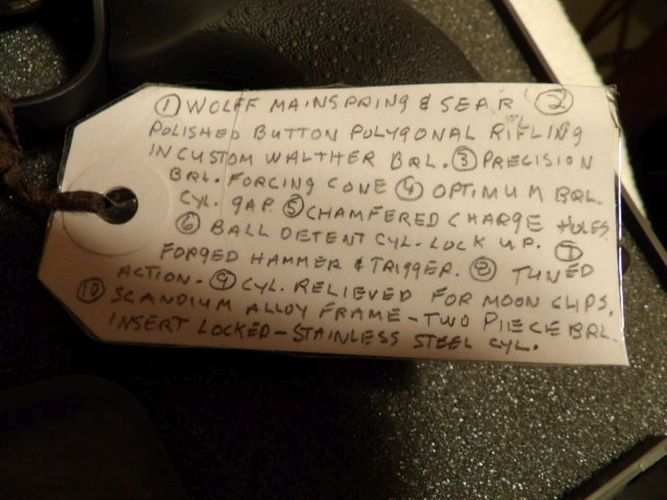 ① WOLFF MAINSPRING & SEAR ②
POLISHED BUTTON POLYGONAL RIFLING
IN CUSTOM WALTHER BRL. ③ PRECISION
BRL. FORCING CONE ④ OPTIMUM BRL.
CYL. GAP. ⑤ CHAMFERED CHARGE HOLES
⑥ BALL DETENT CYL. LOCK UP. ⑦
FORGED HAMMER & TRIGGER. ⑧ TUNED
ACTION - ⑨ CYL. RELIEVED FOR MOON CLIPS.
⑩ SCANDIUM ALLOY FRAME - TWO PIECE BRL.
INSERT LOCKED - STAINLESS STEEL CYL.